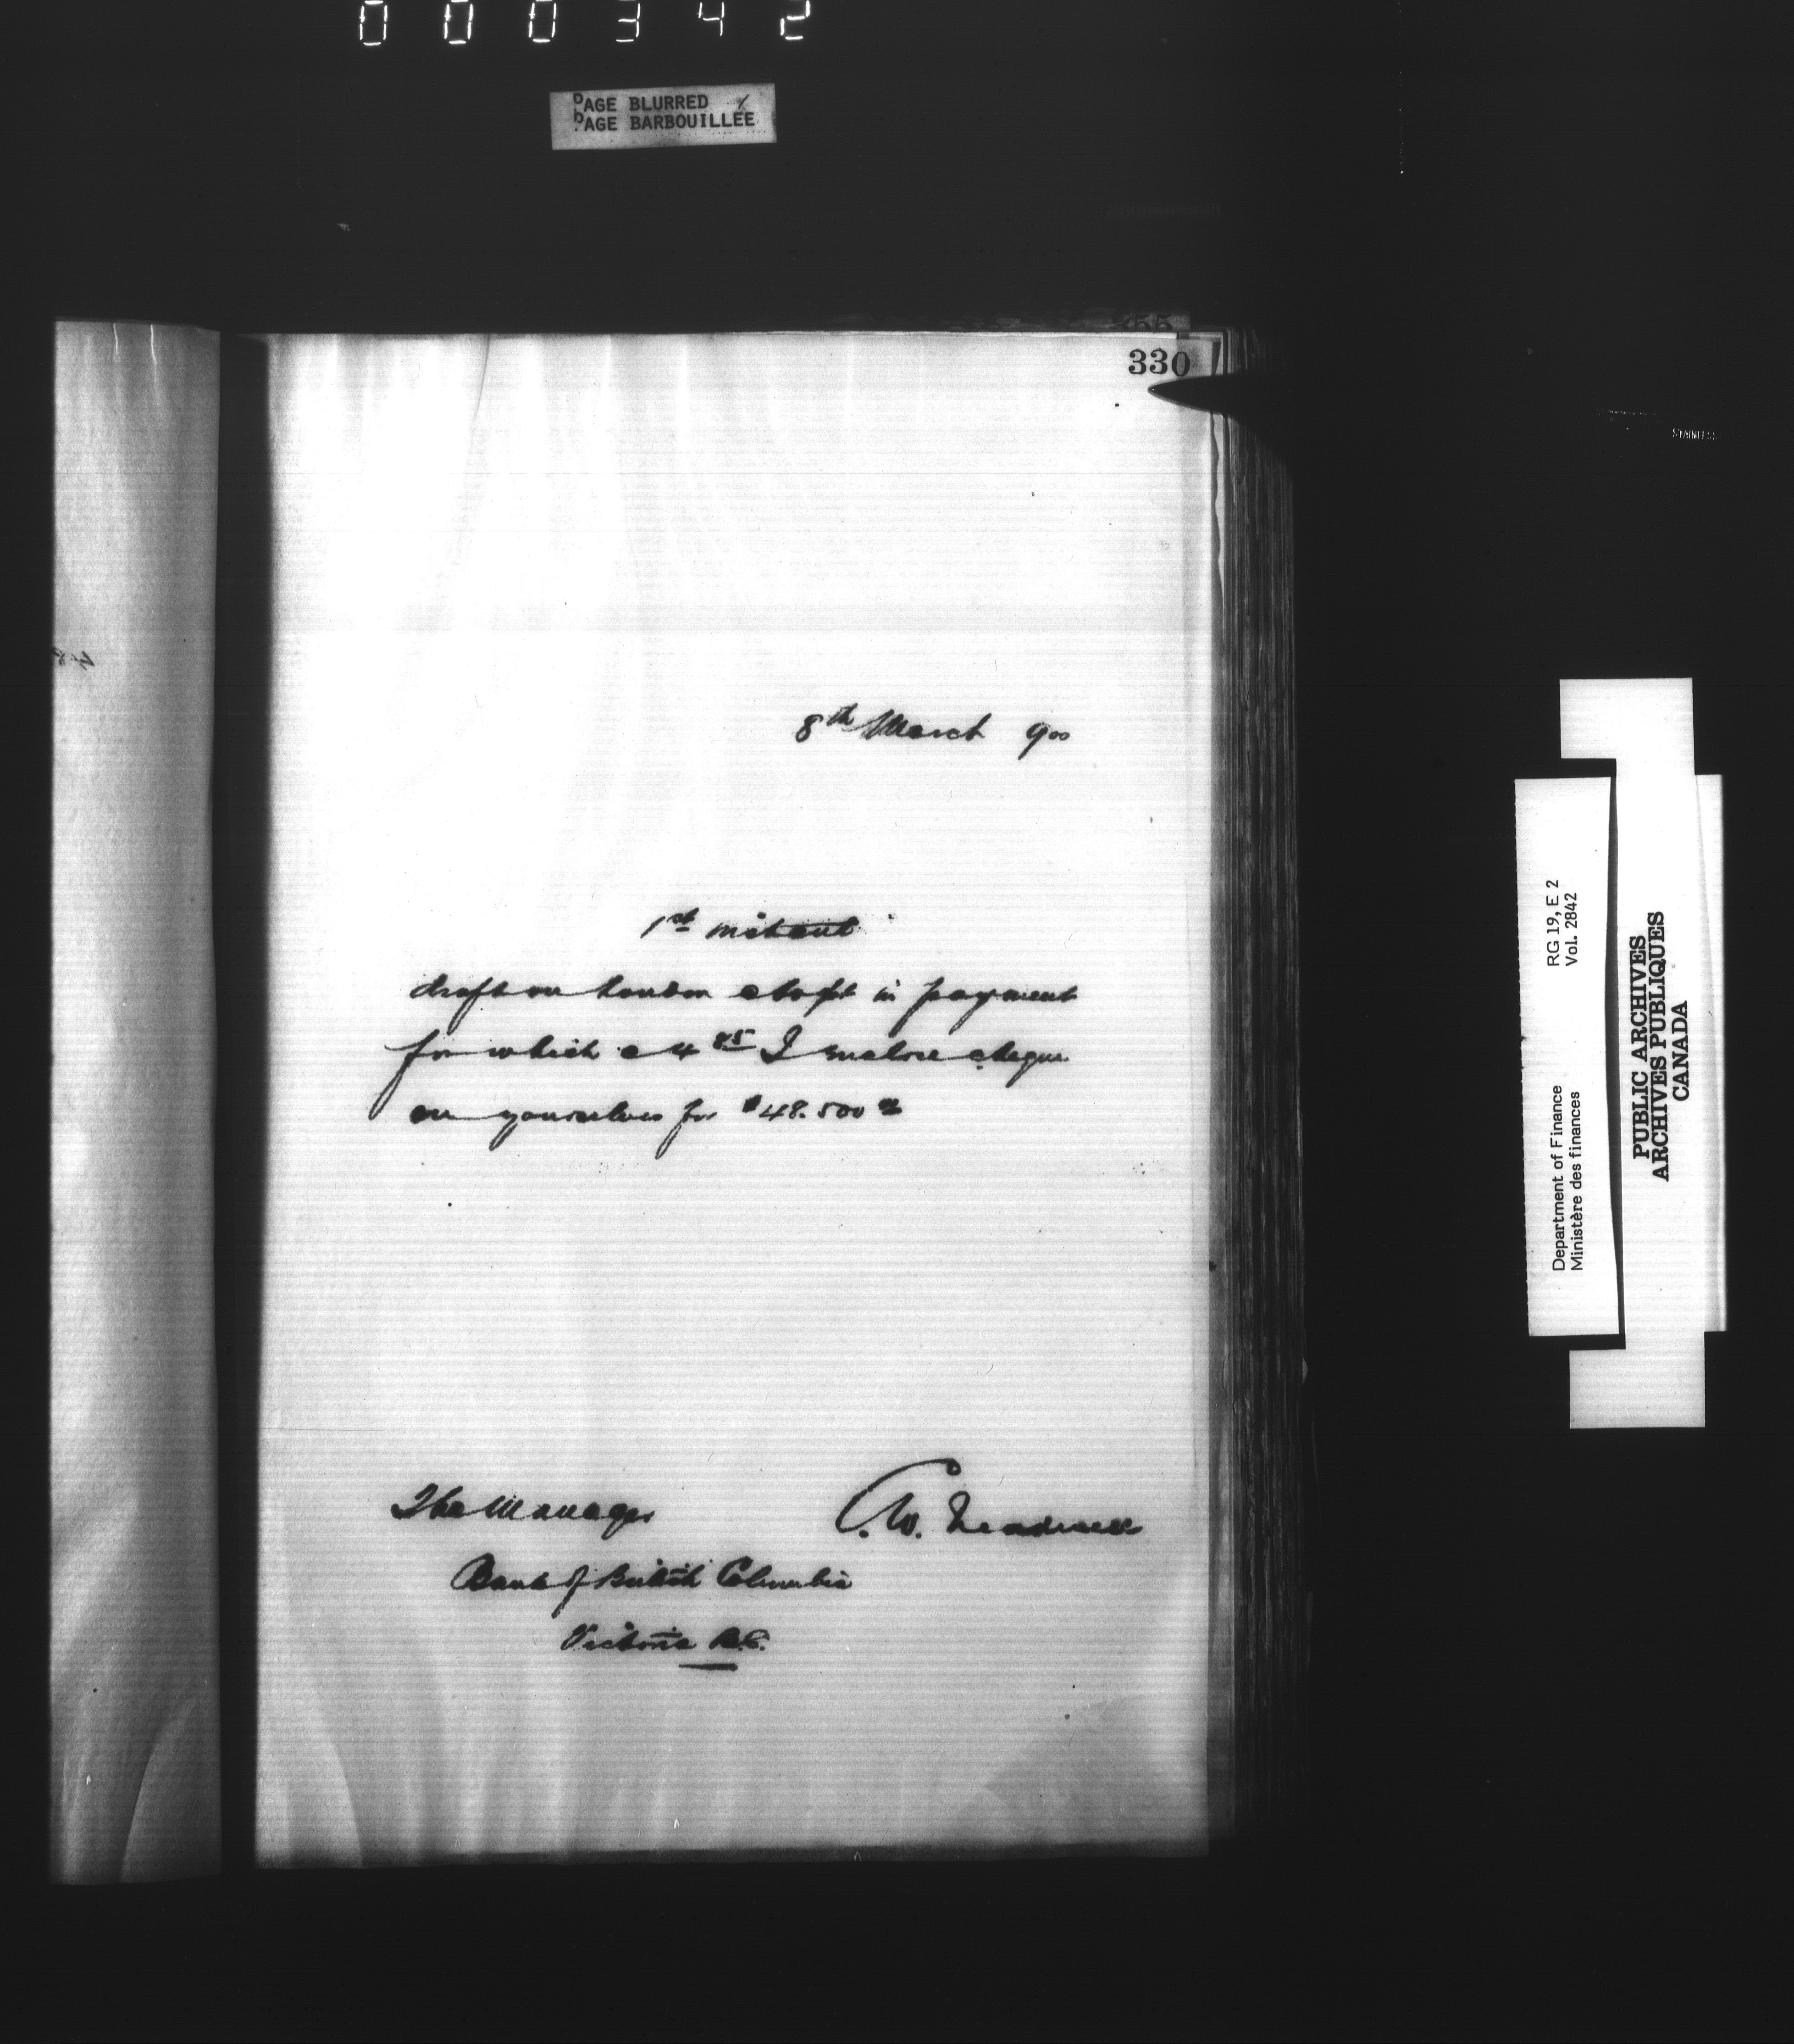 000342
PAGE BLURRED
PAGE BARBOUILLÉE
330
8th March 900
1st instant
draft on London in payment
for which @ 4 85 I enclose cheque
on yourselves for $48.500 00
The Manager
C.W. Treadwell
Bank of British Columbia
Victoria B.C.
STAINLESS
RG 19, E 2
Vol. 2842
Department of Finance
Ministère des finances
PUBLIC ARCHIVES
ARCHIVES PUBLIQUES
CANADA